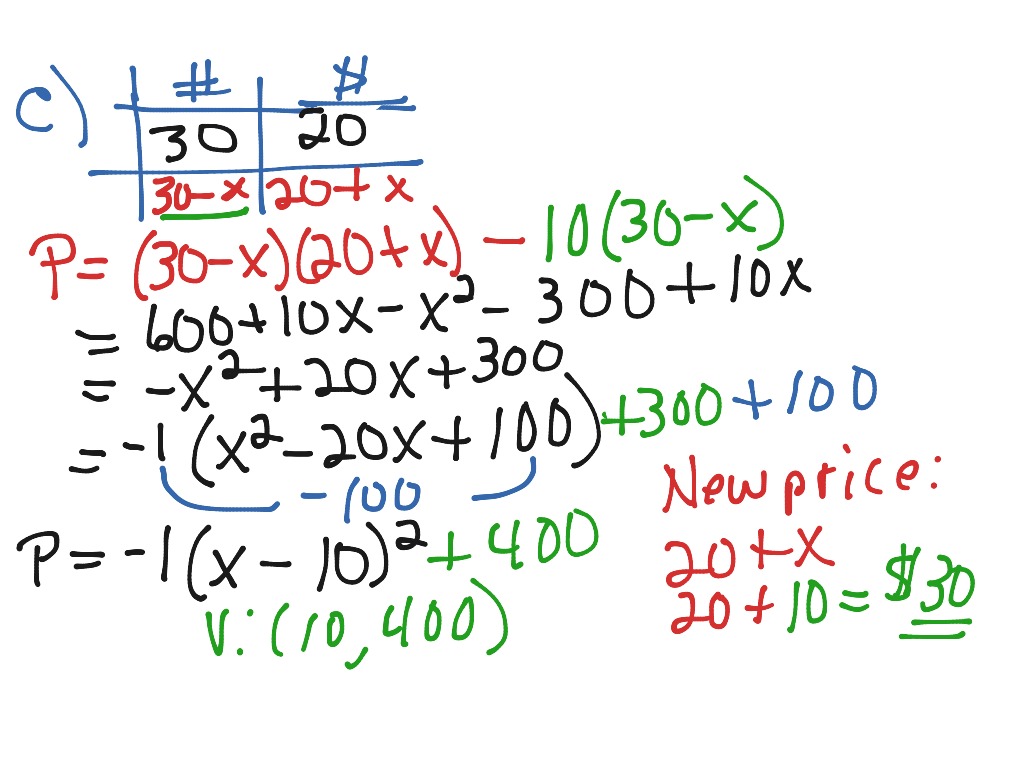 c) # $
30 20
30-x 20+x
P = (30-x)(20+x) - 10(30-x)
= 600+10x-x² - 300+10x
= -x²+20x+300
= -1(x²-20x+100)+300+100
-100
P = -1(x-10)²+400
V: (10,400)
New price:
20+x
20+10=$30